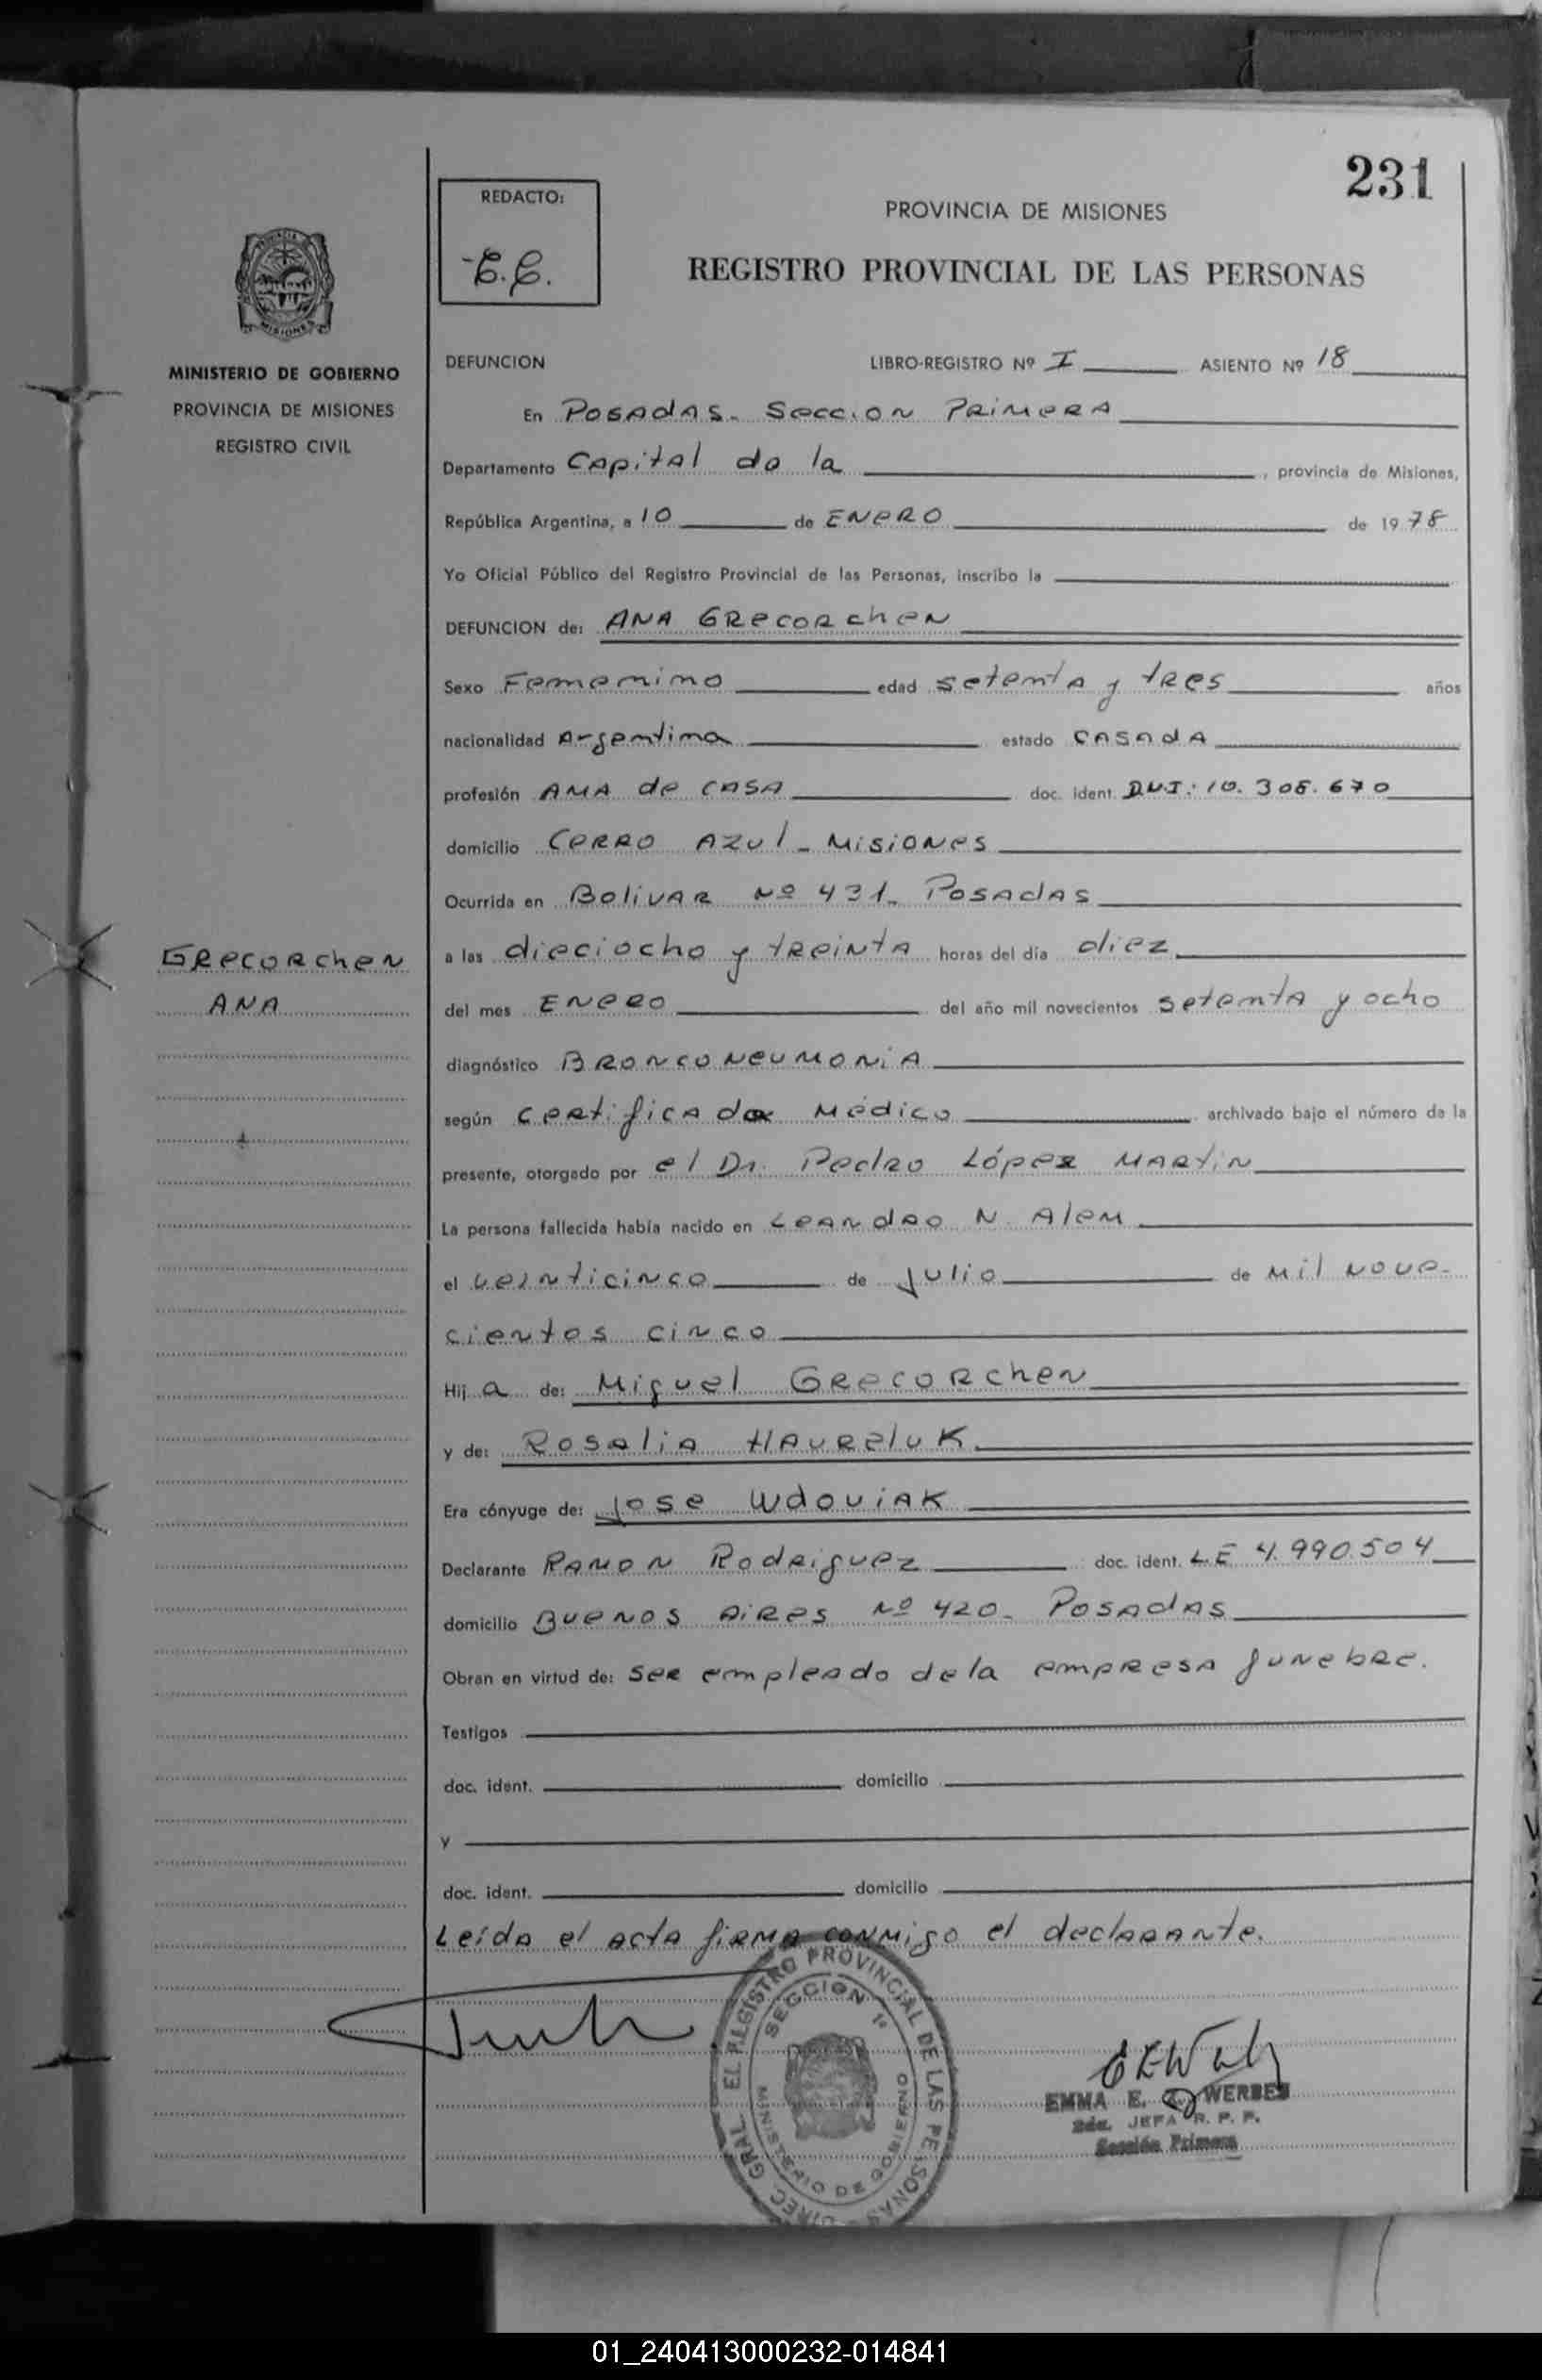 231
REDACTO:
E.E.
PROVINCIA DE MISIONES
REGISTRO PROVINCIAL DE LAS PERSONAS
MISIONES
MINISTERIO DE GOBIERNO
PROVINCIA DE MISIONES
REGISTRO CIVIL
DEFUNCION LIBRO-REGISTRO Nº I ASIENTO Nº 18
En Posadas. Seccion Primera
Departamento Capital de la , provincia de Misiones,
República Argentina, a 10 de Enero de 1978
Yo Oficial Público del Registro Provincial de las Personas, inscribo la
DEFUNCION de: Ana Grecorchen
Sexo Femenino edad setenta y tres años
nacionalidad Argentina estado casada
profesión Ama de casa doc. ident. D.N.I: 10.308.670
domicilio Cerro Azul - Misiones
Ocurrida en Bolivar Nº 431. Posadas
Grecorchen
Ana
a las dieciocho y treinta horas del día diez
del mes Enero del año mil novecientos setenta y ocho
diagnóstico Bronconeumonia
según certificado Médico archivado bajo el número de la
presente, otorgado por el Dr. Pedro López Martin
La persona fallecida había nacido en Leandro N. Alem
el veinticinco de Julio de mil nove-
cientos cinco
Hija de: Miguel Grecorchen
y de: Rosalia Haureluk
Era cónyuge de: Jose Wdoviak
Declarante Ramon Rodriguez doc. ident. L.E 4.990.504
domicilio Buenos Aires Nº 420. Posadas
Obran en virtud de: ser empleado de la empresa funebre.
Testigos
doc. ident. domicilio
y
doc. ident. domicilio
Leída el acta firma conmigo el declarante.
DIREC. GRAL. EL REGISTRO PROVINCIAL DE LAS PERSONAS
SECCION 1º
MINISTERIO DE GOBIERNO
EMMA E. WERBES
2da. JEFA R. P. P.
Sección Primera
01_240413000232-014841